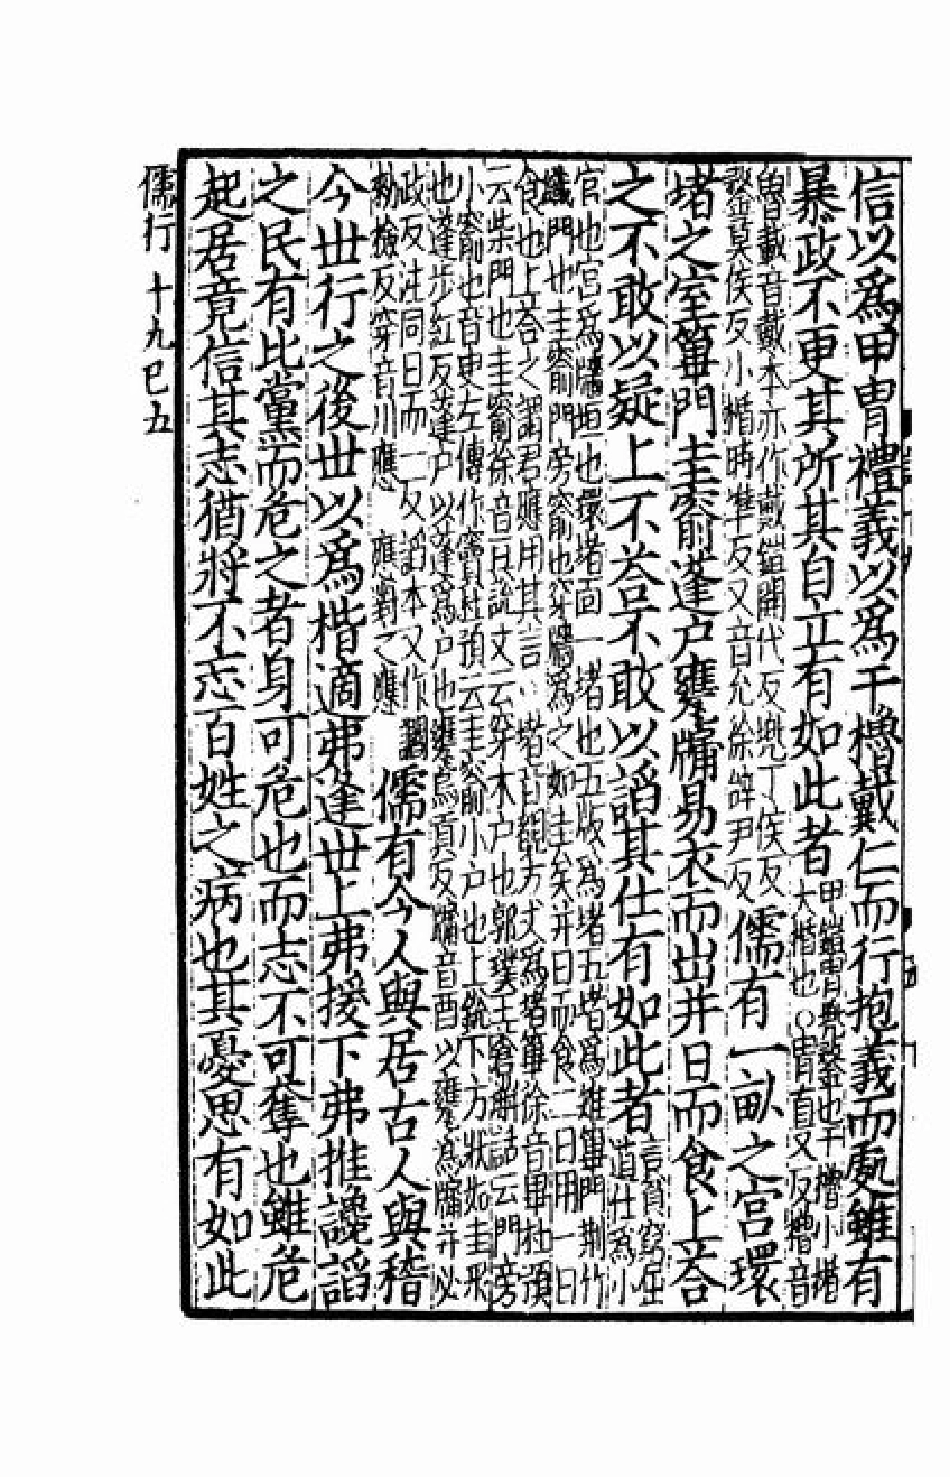 信以爲甲胄禮義以爲干櫓戴仁而行抱義而處雖有
暴政不更其所其自立有如此者
甲鎧胄兜鍪也干櫓小楯
大楯也○胄直又反櫓音
魯戴音戴本亦作戴鎧開代反兜丁侯反
鍪莫侯反小楯時準反又音允徐辭尹反
儒有一畝之宮環
堵之室篳門圭窬蓬戶甕牖易衣而出并日而食上荅
之不敢以疑上不荅不敢以謟其仕有如此者
言貧窮屈
道仕爲小
官也宮爲牆垣也環堵面一堵也五版爲堵五堵爲雉篳門荆竹
織門也圭窬門旁窬也穿牆爲之如圭矣并日而食二日用一日
食也上荅之謂君應用其言○堵音覩方丈爲堵篳徐音畢杜預
云柴門也圭窬徐音豆說文云穿木戶也郭璞三倉解詁云門旁
小窬也音臾左傳作竇杜預云圭窬小戶也上銳下方狀如圭形
也蓬步紅反蓬戶以蓬爲戶也甕烏貢反牖音酉以甕爲牖并必
政反注同日而一反謟本又作
勑檢反穿音川應 應對之應
儒有今人與居古人與稽
今世行之後世以爲楷適弗逢世上弗援下弗推讒謟
之民有此黨而危之者身可危也而志不可奪也雖危
起居竟信其志猶將不忘百姓之病也其憂思有如此
儒行 十九巳五